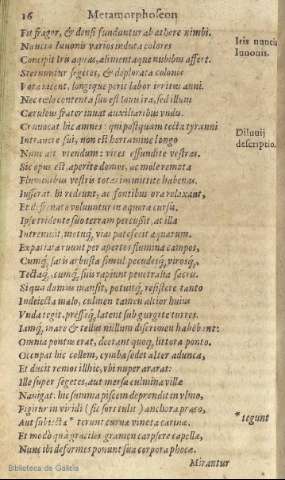 16 Metamorphoseon
Fit fragor, & densi funduntur ab æthere nimbi.
Nuncia Iunonis varios induta colores
Concipit Iris aquas, alimentaque nubibus affert.
Sternuntur segetes, & deplorata coloni
Vota iacent, longique perit labor irritus anni.
Nec cœlo contenta suo est Iouis ira, sed illum
Cæruleus frater iuuat auxiliaribus vndis.
Conuocat hic amnes: qui postquam tecta tyranni
Intrauere sui, non est hortamine longo
Nunc ait vtendum: vires effundite vestras.
Sic opus est, aperite domos, ac mole remota
Fluminibus vestris totas immittite habenas.
Iusserat. hi redeunt, ac fontibus ora relaxant,
Et defrænato voluuntur in æquora cursu.
Ipse tridente suo terram percussit, at illa
Intremuit, motuq; vias patefecit aquarum.
Expatiata ruunt per apertos flumina campos,
Cumq; satis arbusta simul pecudesq; virosq;,
Tectaq;, cumq; suis rapiunt penetralia sacris.
Siqua domus mansit, potuitq; resistere tanto
Indeiecta malo, culmen tamen altior huius
Vnda tegit, pressæq; latent sub gurgite turres.
Iamq; mare & tellus nullum discrimen habebant:
Omnia pontus erat, deerant quoq; littora ponto.
Occupat hic collem, cymba sedet alter adunca,
Et ducit remos illhic, vbi nuper ararat:
Ille super segetes, aut mersæ culmina villæ
Nauigat. hic summa piscem deprendit in vlmo,
Figitur in viridi (si fors tulit) anchora prato,
Aut subiecta * terunt curuæ vineta carinæ.
Et modò quà graciles gramen carpsere capellæ,
Nunc ibi deformes ponunt sua corpora phocæ.
Mirantur
Iris nuncia
Iunonis.
Diluuij
descriptio.
* tegunt
Biblioteca de Galicia